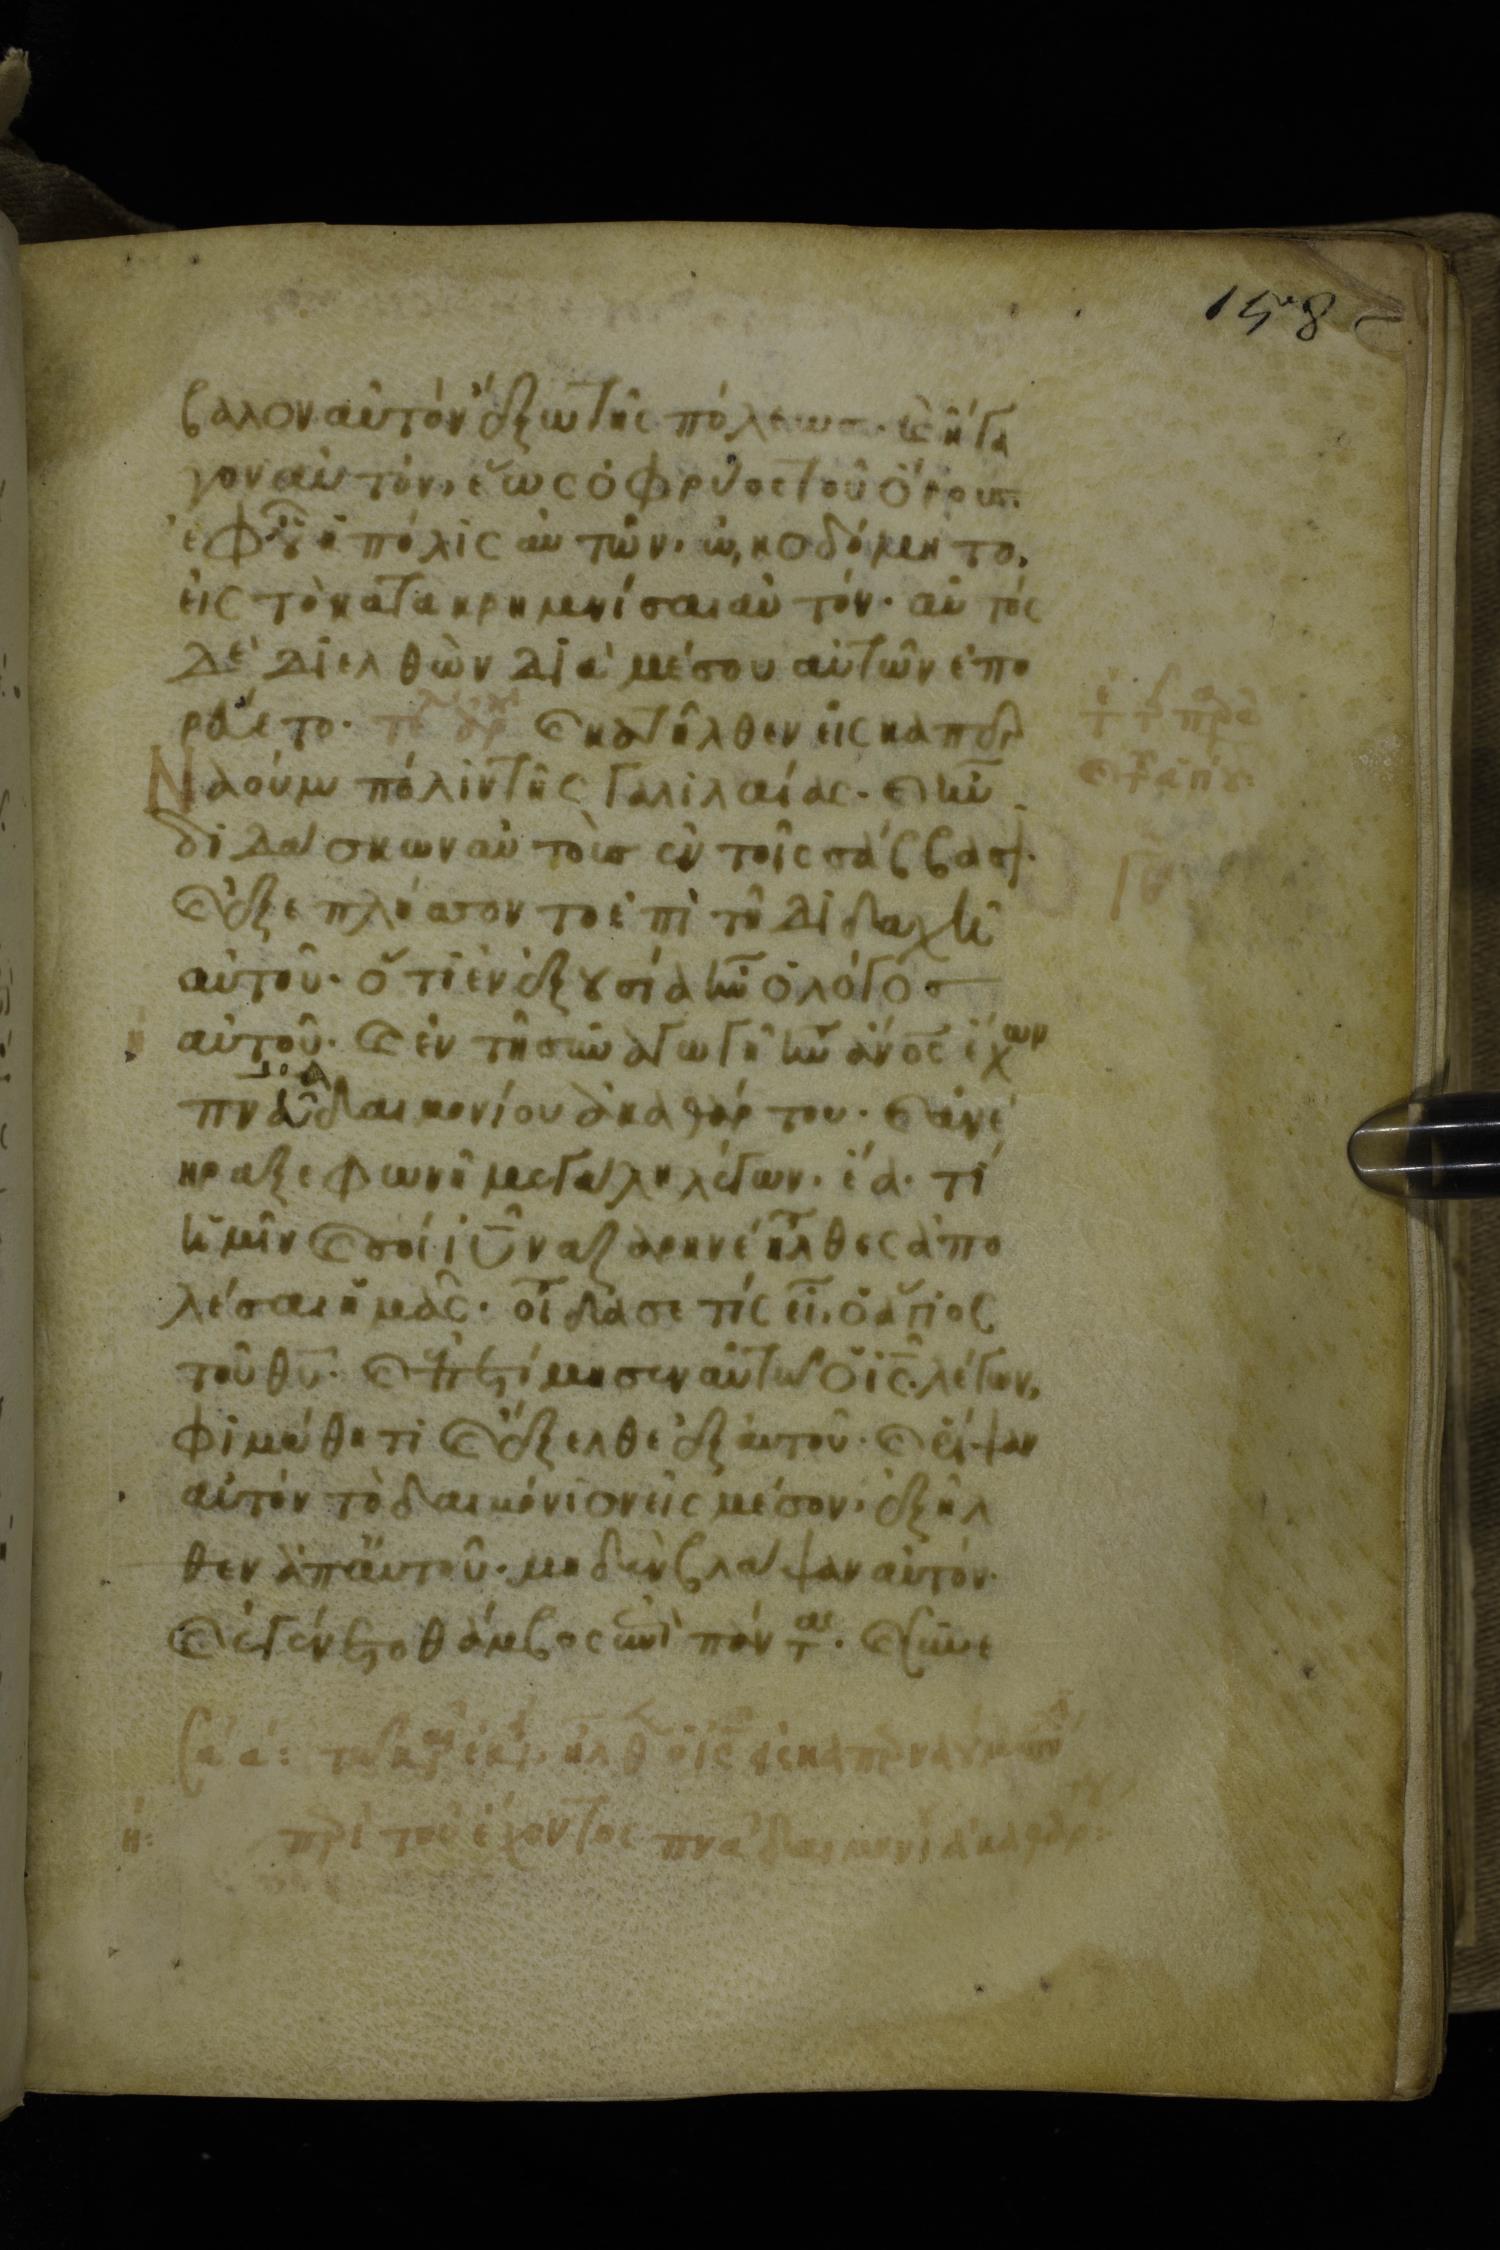 158
βαλον αὐτόν ἔξω τῆς πόλεως. καὶ ἤγα
γον αὐτόν, ἕως ὀφρύος τοῦ ὄρους.
ἐφ οὗ ἡ πόλις αὐτῶν. ὠκοδόμητο,
εἰς τὸ κατακρημνίσαι αὐτόν. αὐτός
δὲ διελθὼν διὰ μέσου αὐτῶν ἐπο
ρεύετο. καὶ κατῆλθεν εἰς καπερ
Ναούμ πόλιν τῆς Γαλιλαίας. καὶ ἦν
διδάσκων αὐτοὺς ἐν τοῖς σάββασι.
καὶ ἐξεπλήσσοντο ἐπὶ τῇ διδαχῇ
αὐτοῦ. ὅτι ἐν ἐξουσία ἦν ὁ λόγος
αὐτοῦ. καὶ ἐν τῇ συναγωγῇ ἦν ἄνος ἔχων
πνα δαιμονίου ἀκαθάρτου. καὶ ἀνέ
κραξε φωνῇ μεγάλη λέγων. ἔα. τί
ἡμῖν καὶ σοί ιυ ναζαρηνέ ἦλθες ἀπο
λέσαι ἡμᾶς. οἶδά σε τίς εἶ, ὁ ἅγιος
τοῦ θυ. καὶ ἐπετίμησεν αὐτῶ ὁ ις. λέγων,
φιμώθητι καὶ ἔξελθε ἐξ αυτοῦ. καὶ ῥίψαν
αὐτόν τὸ δαιμόνιον εἰς μέσον. ἐξῆλ
θεν ἀπ αυτοῦ. μηδὲν βλάψαν αὐτόν.
καὶ ἐγένετο θάμβος ἐπὶ πάντας. καὶ συνε
τῶ κρῶ ἐκείνω, ἦλθεν ὁ ις εἰς καπερναούμ
η: περὶ τοῦ ἔχοντος πνα δαιμονίου ἀκαθάρτου